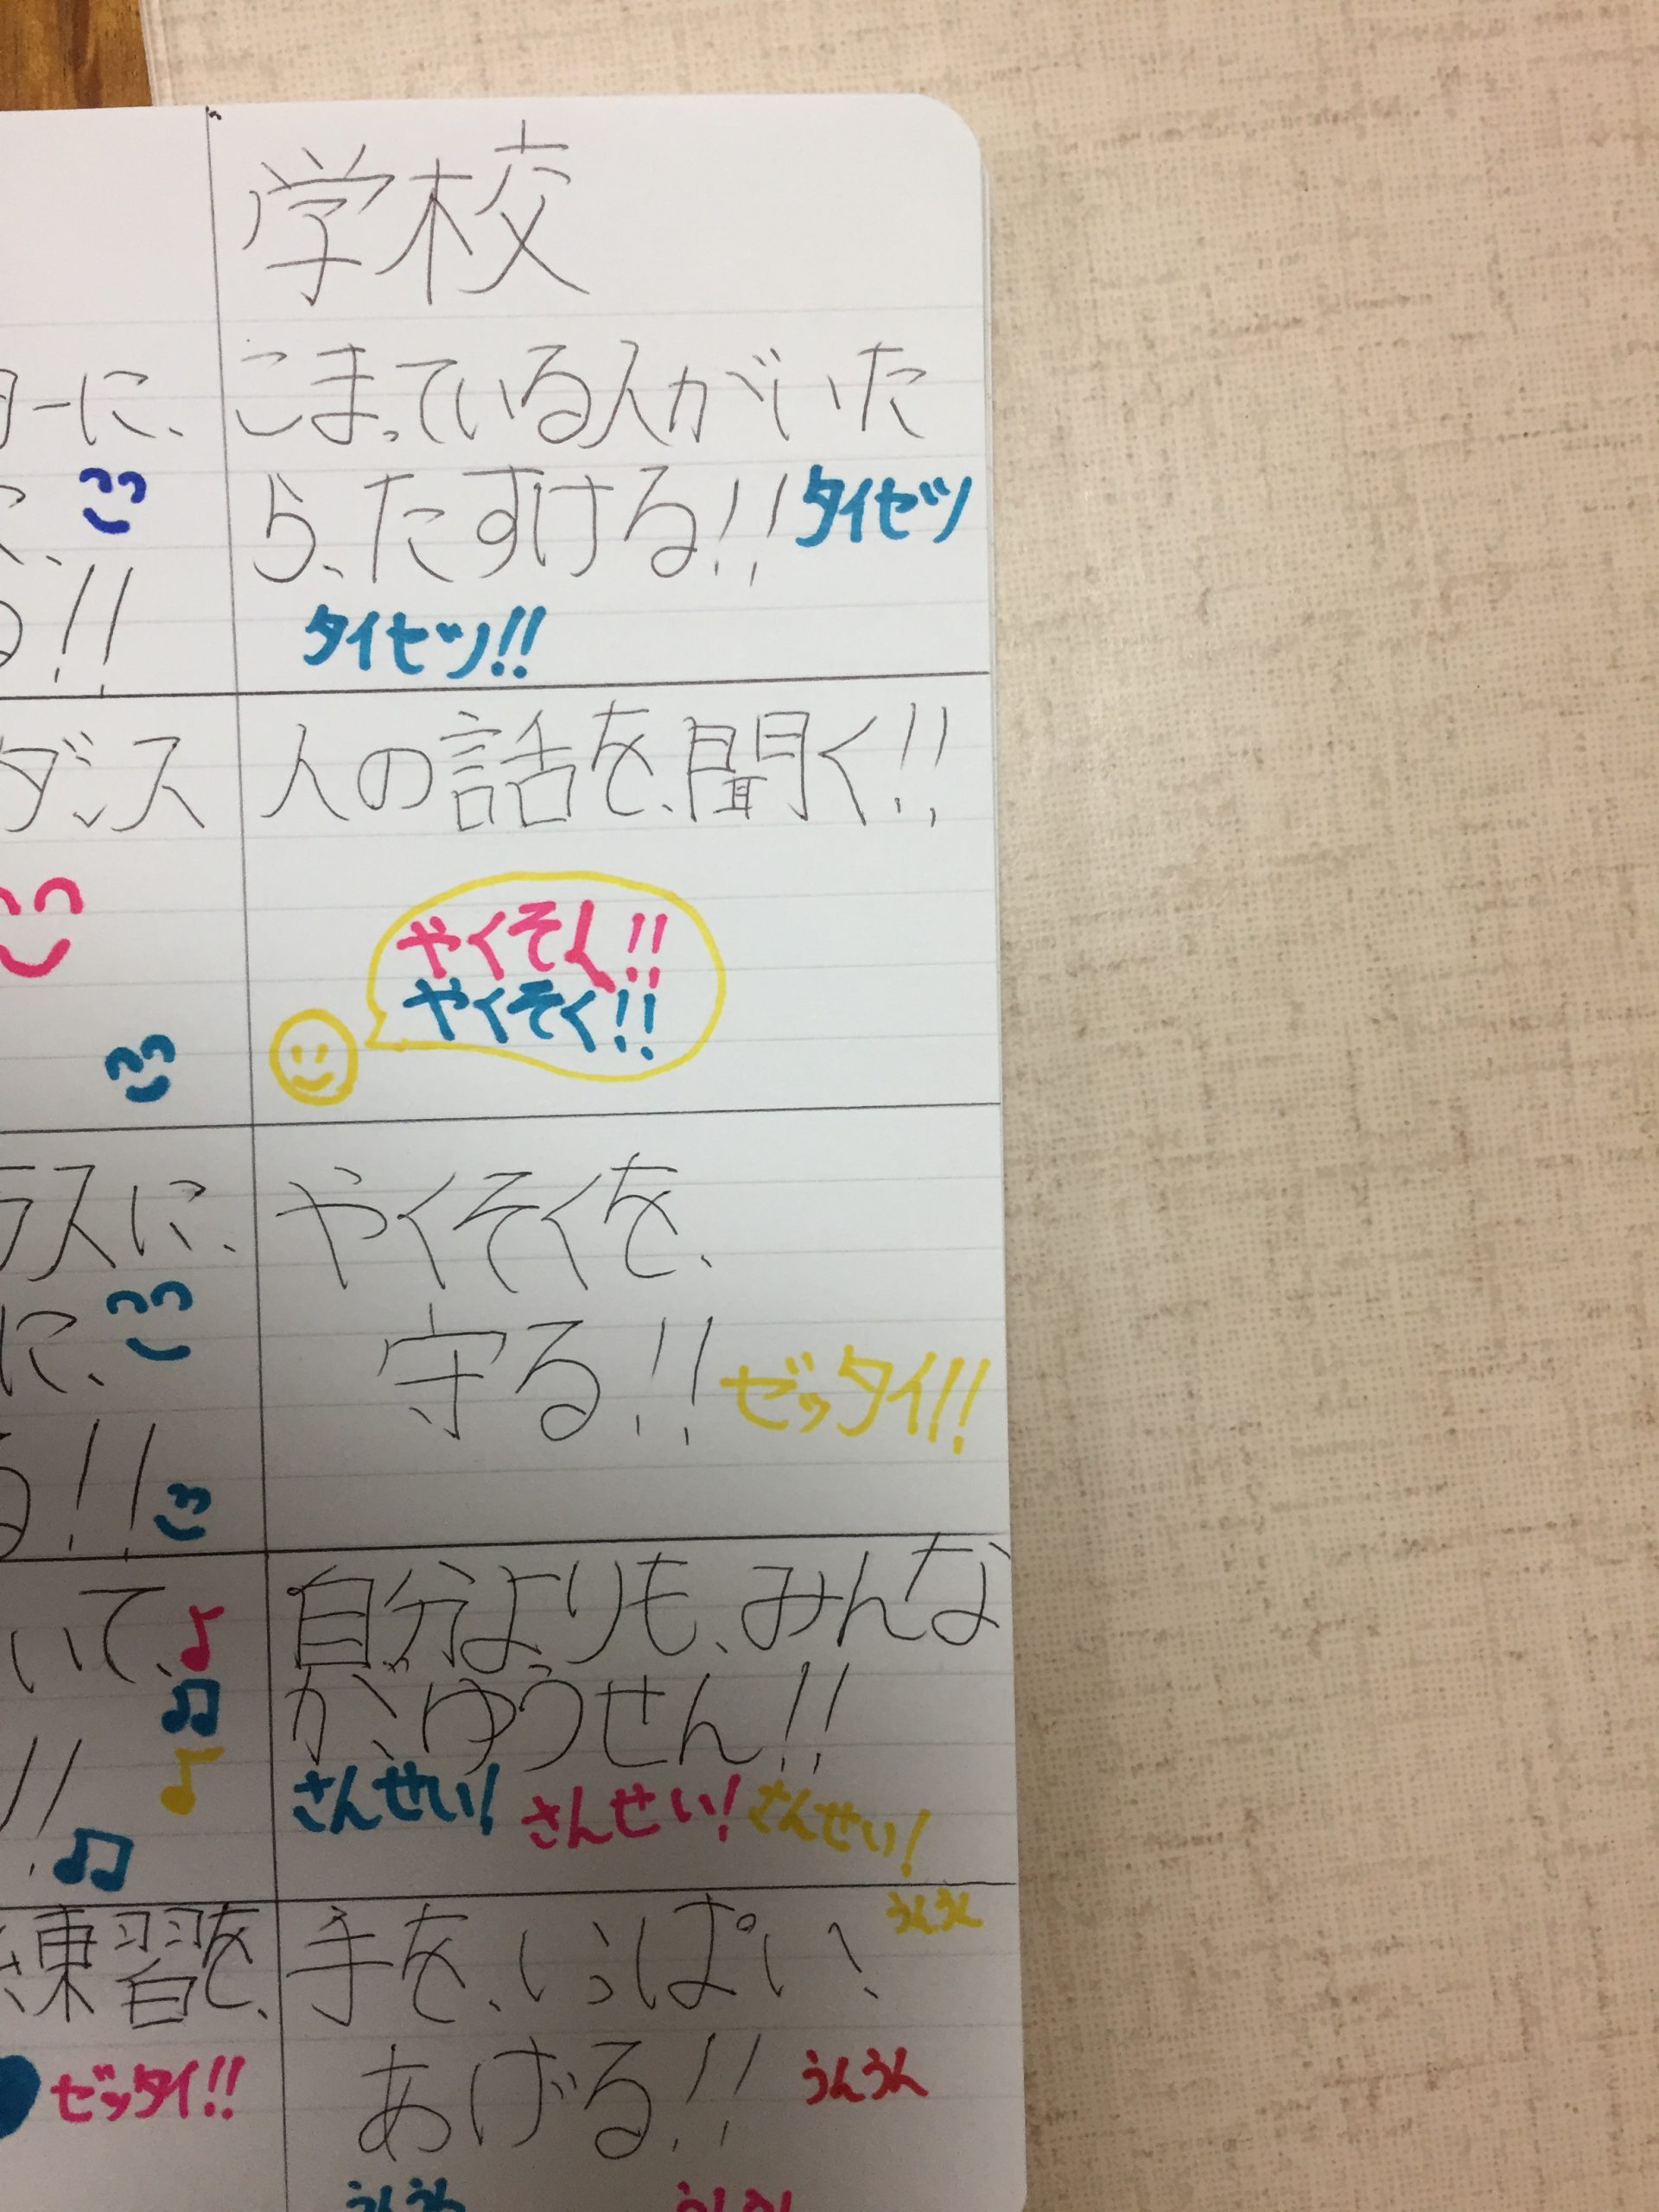 学校
こまっている人がいた
ら、たすける!!タイセツ
タイセツ!!
人の話を、聞く!!
やくそく!!
やくそく!!
やくそくを、
守る!!ゼッタイ!!
自分よりも、みんな
が、ゆうせん!!
さんせい!さんせい!さんせい!
うんうん
手を、いっぱい、
あげる!!うんうん
うんうん うんうん
ーに、
!!
ダンス
ラスに、
に、
る!!
いて、
!!
練習を、
ゼッタイ!!